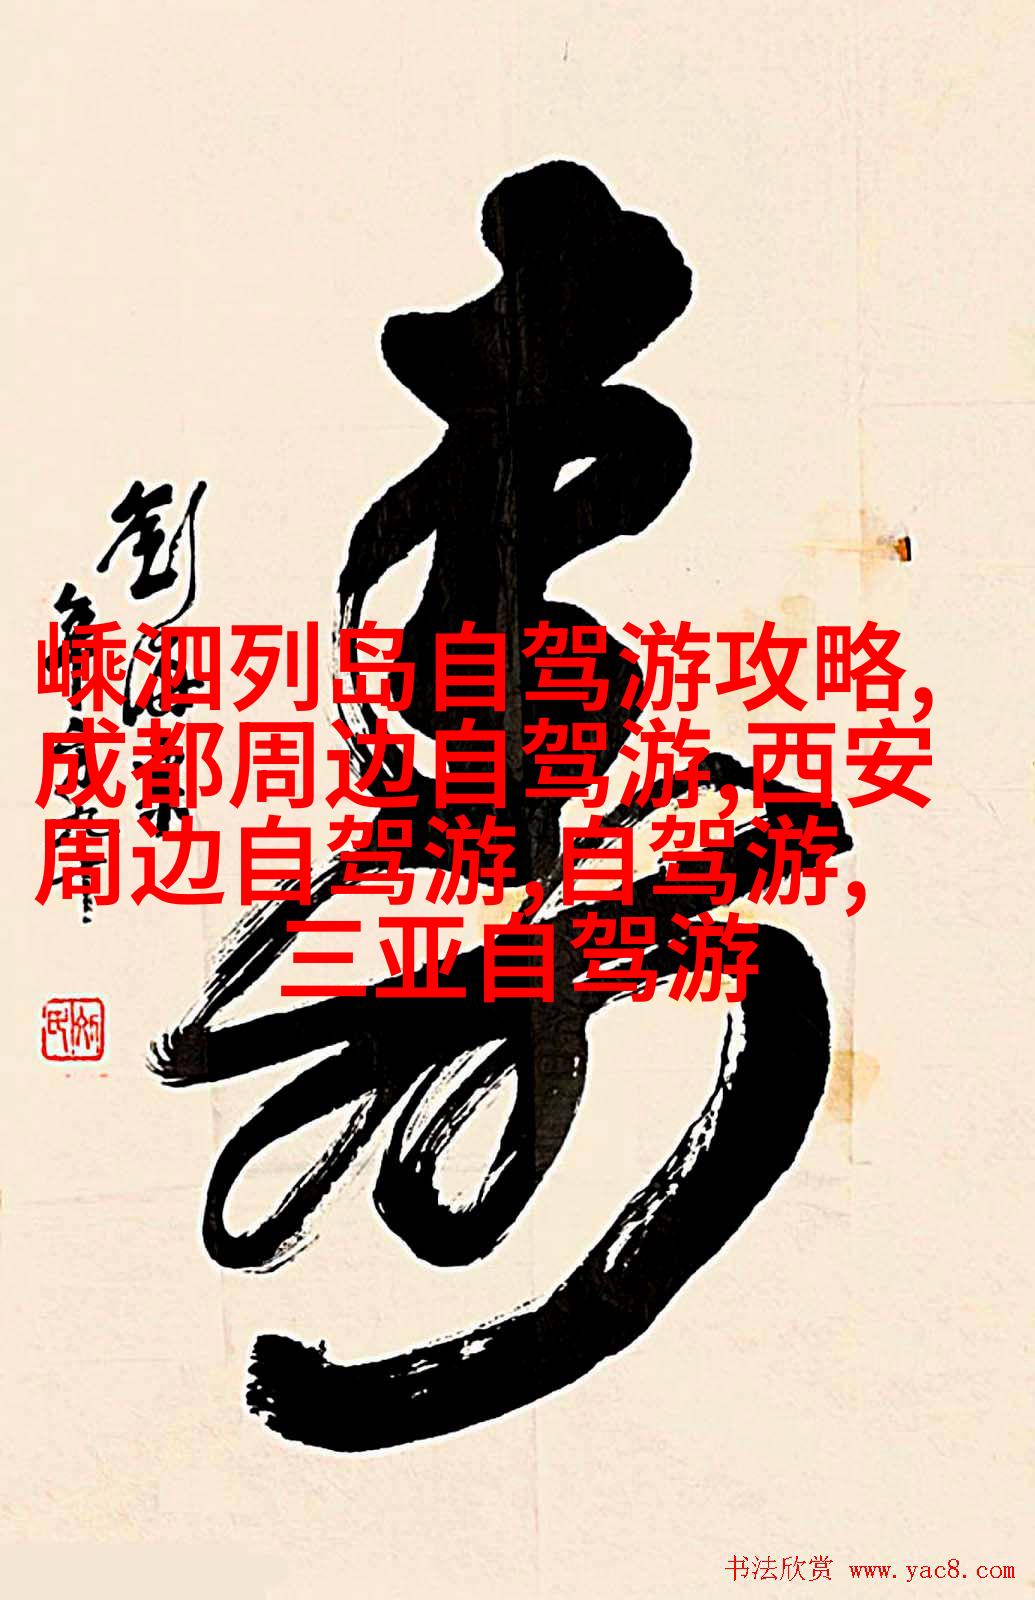 寿
嵊泗列岛自驾游攻略,
成都周边自驾游,西安
周边自驾游,自驾游,
三亚自驾游
书法欣赏 www.yac8.com